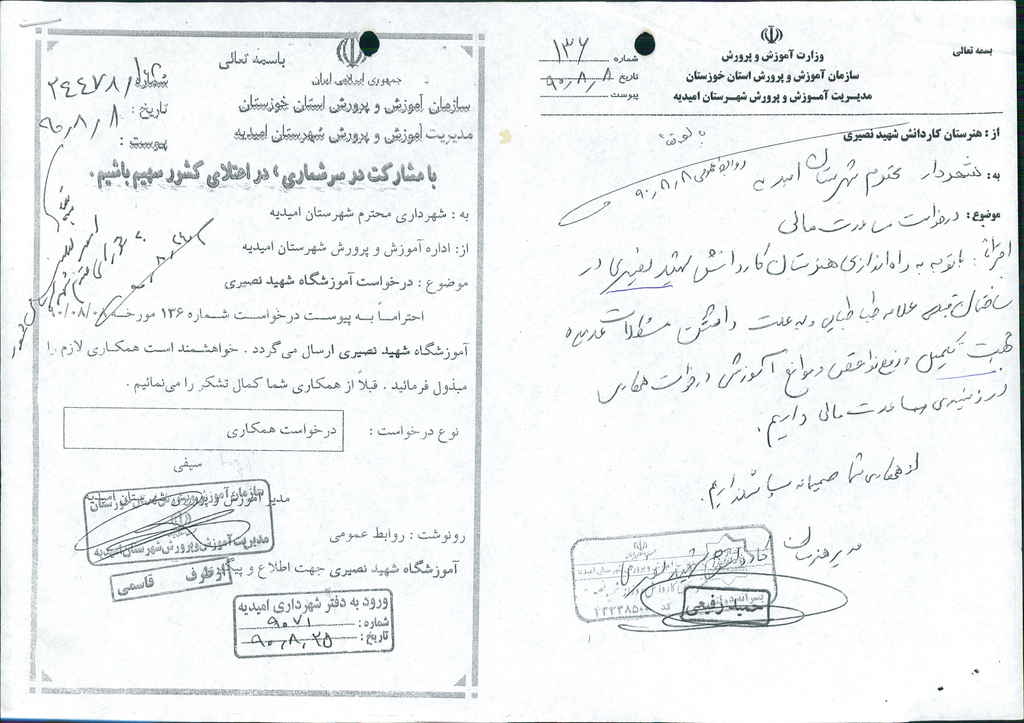 بسمه تعالی
وزارت آموزش و پرورش
سازمان آموزش و پرورش استان خوزستان
مدیریت آمـوزش و پرورش شهـرستان امیدیه
شماره ۱۳۶
تاریخ ۹۰٫۸٫۸
پیوست
از : هنرستان کاردانش شهید نصیری
به: شهردار محترم شهرستان امیدیه
روابط عمومی ۹۰٫۸٫۸
موضوع: درخواست مساعدت مالی
احتراماً : با توجه به راه اندازی هنرستان کاردانش شهید نصیری در
ساختمان قبلی علامه طباطبایی و به علت داشتن مشکلات عدیده
جهت تکمیل و رفع نواقص و موانع آموزشی درخواست همکاری
در زمینه‌ی مساعدت مالی داریم.
از همکاری شما صمیمانه سپاسگذاریم.
مدیر هنرستان
کاردانش شهید نصیری
حمید رفیعی
باسمه تعالی
جمهوری اسلامی ایران
سازمان آموزش و پرورش استان خوزستان
مدیریت آموزش و پرورش شهرستان امیدیه
شماره :
تاریخ : ۹۰٫۸٫۸
پیوست :
با مشارکت در سرشماری، در اعتلای کشور سهیم باشیم.
به : شهرداری محترم شهرستان امیدیه
از: اداره آموزش و پرورش شهرستان امیدیه
موضوع : درخواست آموزشگاه شهید نصیری
احتراماً به پیوست درخواست شماره ۱۳۶ مورخه ۹۰/۰۸/۰۸
آموزشگاه شهید نصیری ارسال می گردد . خواهشمند است همکاری لازم را
مبذول فرمائید . قبلاً از همکاری شما کمال تشکر را می‌نمائیم .
نوع درخواست : درخواست همکاری
سیفی
مدیر آموزش و پرورش شهرستان امیدیه
سازمان آموزش و پرورش استان خوزستان
مدیریت آموزش و پرورش شهرستان امیدیه
از طرف قاسمی
رونوشت : روابط عمومی
آموزشگاه شهید نصیری جهت اطلاع و پیگیری
ورود به دفتر شهرداری امیدیه
شماره : ۹۰۷۱
تاریخ : ۹۰٫۸٫۲۵